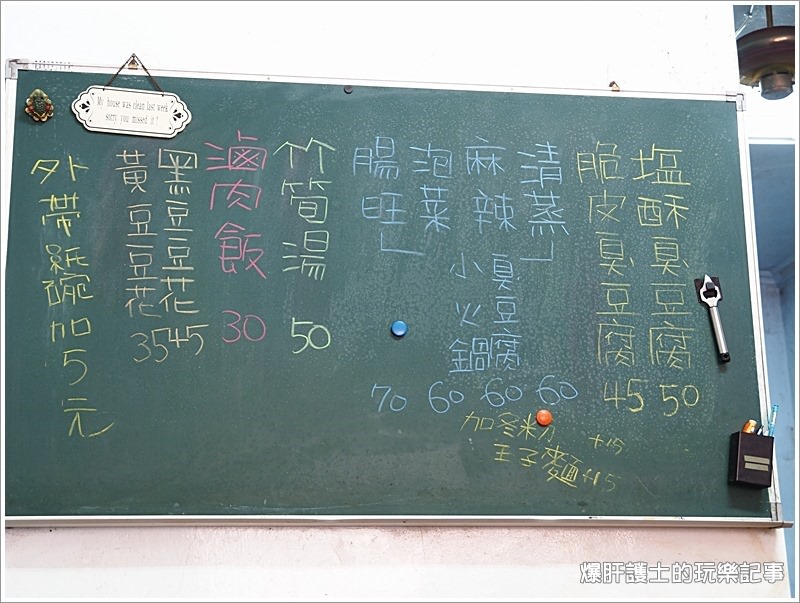 My house was clean last week
sorry you missed it!
塩酥臭豆腐 50
脆皮臭豆腐 45
清蒸 60
麻辣 60
泡菜 60
腸旺 70
臭豆腐
小火鍋
加冬粉 +15
王子麵 +15
竹筍湯 50
滷肉飯 30
黑豆豆花 45
黃豆豆花 35
外帶紙碗加5元
爆肝護士的玩樂記事